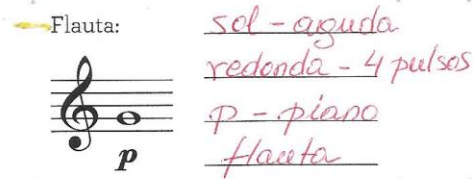 Flauta:
sol - aguda
redonda - 4 pulsos
p - piano
flauta
p